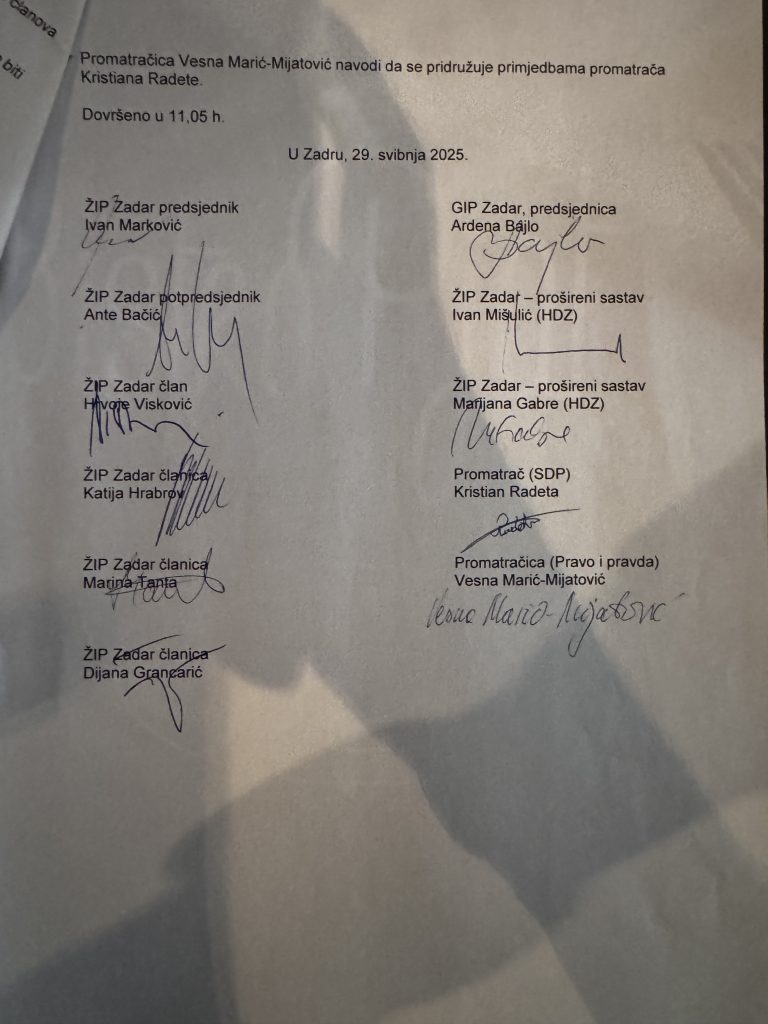 članova
biti
Promatračica Vesna Marić-Mijatović navodi da se pridružuje primjedbama promatrača
Kristiana Radete.
Dovršeno u 11,05 h.
U Zadru, 29. svibnja 2025.
ŽIP Zadar predsjednik
Ivan Marković
ŽIP Zadar potpredsjednik
Ante Bačić
ŽIP Zadar član
Hrvoje Visković
ŽIP Zadar članica
Katija Hrabrov
ŽIP Zadar članica
Marina Tanta
ŽIP Zadar članica
Dijana Grancarić
GIP Zadar, predsjednica
Ardena Bajlo
Bajlo
ŽIP Zadar – prošireni sastav
Ivan Mišulić (HDZ)
ŽIP Zadar – prošireni sastav
Marijana Gabre (HDZ)
Promatrač (SDP)
Kristian Radeta
Promatračica (Pravo i pravda)
Vesna Marić-Mijatović
Vesna Marić-Mijatović